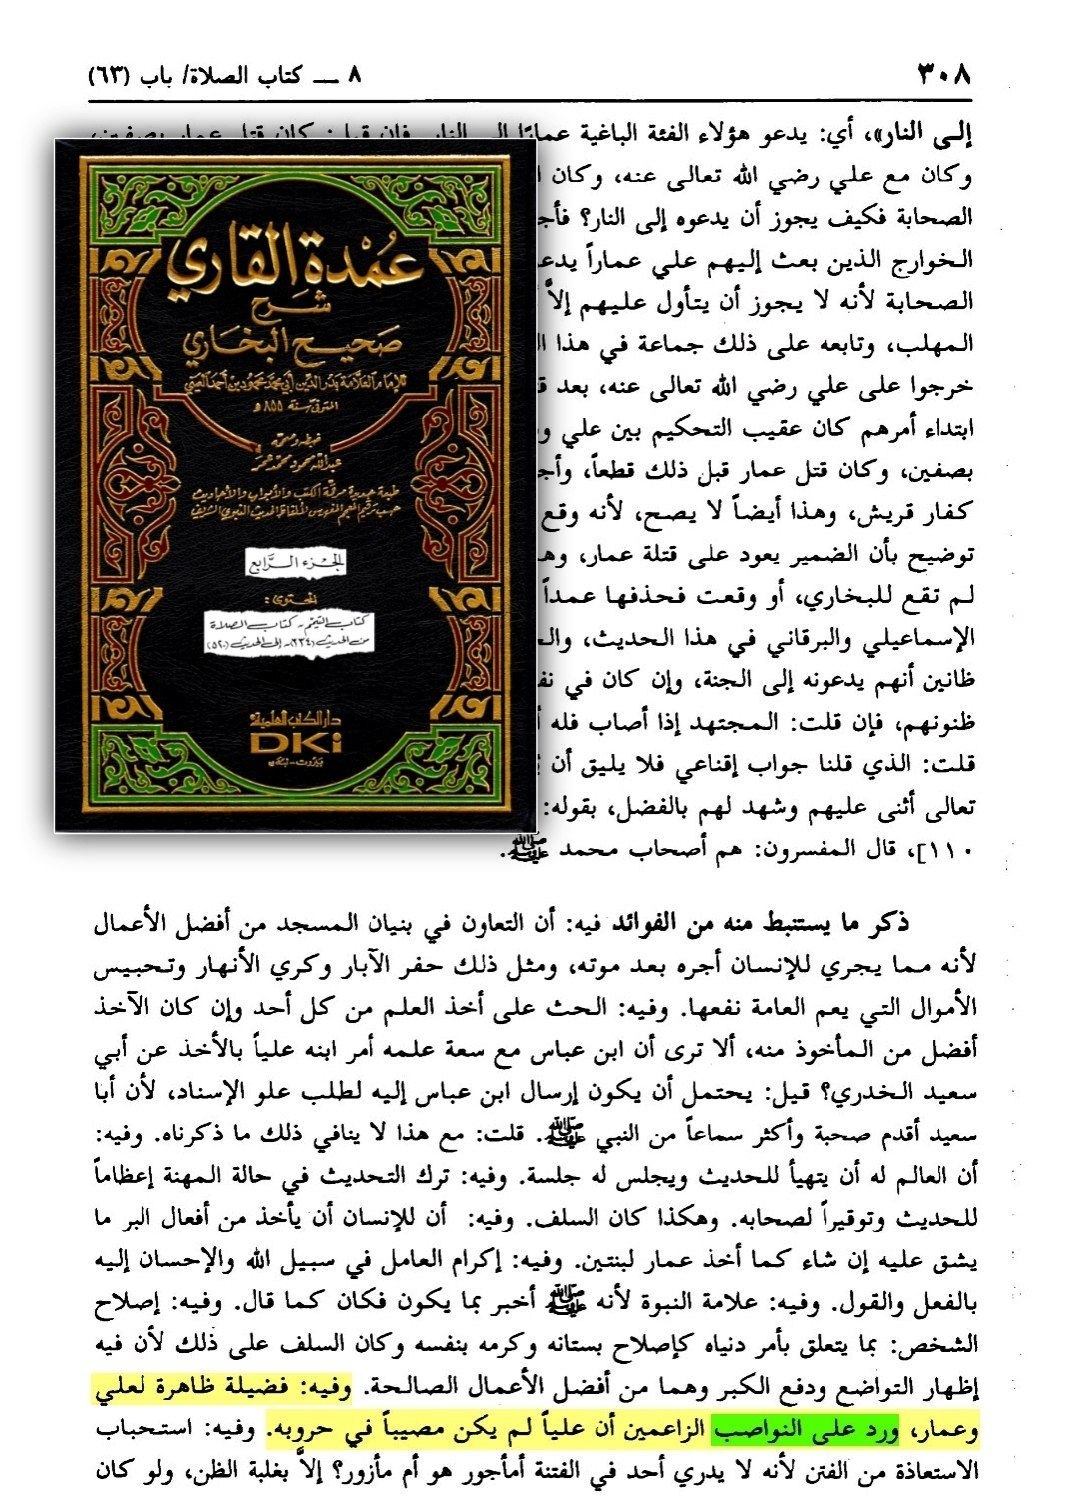 ٣٠٨
٨ ـــ كتاب الصلاة/ باب (٦٣)
إلى النار»، أي: يدعو هؤلاء الفئة الباغية عمارًا إلى النار. فإن قيل: كان قتل عمار بصفين،
وكان مع علي رضي الله تعالى عنه، وكان
الصحابة فكيف يجوز أن يدعوه إلى النار؟
الخوارج الذين بعث إليهم علي عماراً
الصحابة لأنه لا يجوز أن يتأول عليهم إلاَّ
المهلب، وتابعه على ذلك جماعة في هذا
خرجوا على علي رضي الله تعالى عنه، بعد
ابتداء أمرهم كان عقيب التحكيم بين علي
بصفين، وكان قتل عمار قبل ذلك قطعاً،
كفار قريش، وهذا أيضاً لا يصح، لأنه وقع
توضيح بأن الضمير يعود على قتلة عمار،
لم تقع للبخاري، أو وقعت فحذفها عمداً
الإسماعيلي والبرقاني في هذا الحديث،
ظانين أنهم يدعونه إلى الجنة، وإن كان في
ظنونهم، فإن قلت: المجتهد إذا أصاب فله
قلت: الذي قلنا جواب إقناعي فلا يليق أن
تعالى أثنى عليهم وشهد لهم بالفضل، بقوله:
١١٠]، قال المفسرون: هم أصحاب محمد ﷺ.
عمدة القاري
شرح
صحيح البخاري
للإمام العلامة بدر الدين أبي محمد محمود بن أحمد العيني
المتوفى سنة ٨٥٥ هـ
ضبطه وصححه
عبد الله محمود محمد عمر
طبعة جديدة مرقمة الكتب والأبواب والأحاديث
حسب ترقيم المعجم المفهرس لألفاظ الحديث النبوي الشريف
الجزء الرابع
المحتوى:
كتاب التيمم - كتاب الصلاة
من الحديث (٣٣٤) - إلى الحديث (٥٢٠)
دار الكتب العلمية
DKi
بيروت - لبنان
ذكر ما يستنبط منه من الفوائد فيه: أن التعاون في بنيان المسجد من أفضل الأعمال
لأنه مما يجري للإنسان أجره بعد موته، ومثل ذلك حفر الآبار وكري الأنهار وتحبيس
الأموال التي يعم العامة نفعها. وفيه: الحث على أخذ العلم من كل أحد وإن كان الآخذ
أفضل من المأخوذ منه، ألا ترى أن ابن عباس مع سعة علمه أمر ابنه علياً بالأخذ عن أبي
سعيد الخدري؟ قيل: يحتمل أن يكون إرسال ابن عباس إليه لطلب علو الإسناد، لأن أبا
سعيد أقدم صحبة وأكثر سماعاً من النبي ﷺ. قلت: مع هذا لا ينافي ذلك ما ذكرناه. وفيه:
أن العالم له أن يتهيأ للحديث ويجلس له جلسة. وفيه: ترك التحديث في حالة المهنة إعظاماً
للحديث وتوقيراً لصحابه. وهكذا كان السلف. وفيه: أن للإنسان أن يأخذ من أفعال البر ما
يشق عليه إن شاء كما أخذ عمار لبنتين. وفيه: إكرام العامل في سبيل الله والإحسان إليه
بالفعل والقول. وفيه: علامة النبوة لأنه ﷺ أخبر بما يكون فكان كما قال. وفيه: إصلاح
الشخص: بما يتعلق بأمر دنياه كإصلاح بستانه وكرمه بنفسه وكان السلف على ذلك لأن فيه
إظهار التواضع ودفع الكبر وهما من أفضل الأعمال الصالحة. وفيه: فضيلة ظاهرة لعلي
وعمار، ورد على النواصب الزاعمين أن علياً لم يكن مصيباً في حروبه. وفيه: استحباب
الاستعاذة من الفتن لأنه لا يدري أحد في الفتنة أمأجور هو أم مأزور؟ إلاَّ بغلبة الظن، ولو كان